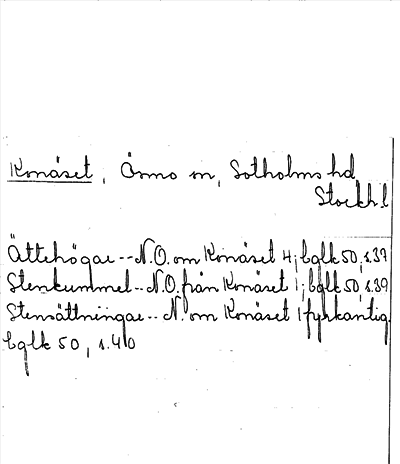 Konäset, Ösmo sn, Sotholms hd
Stockh.l
Ättehögar -- N.O. om Konäset 4; bglk 50, s.39
Stenkummel -- N.O. från Konäset 1; bglk 50, s.39
Stensättningar -- N. om Konäset 1 fyrkantig
bglk 50, s.40